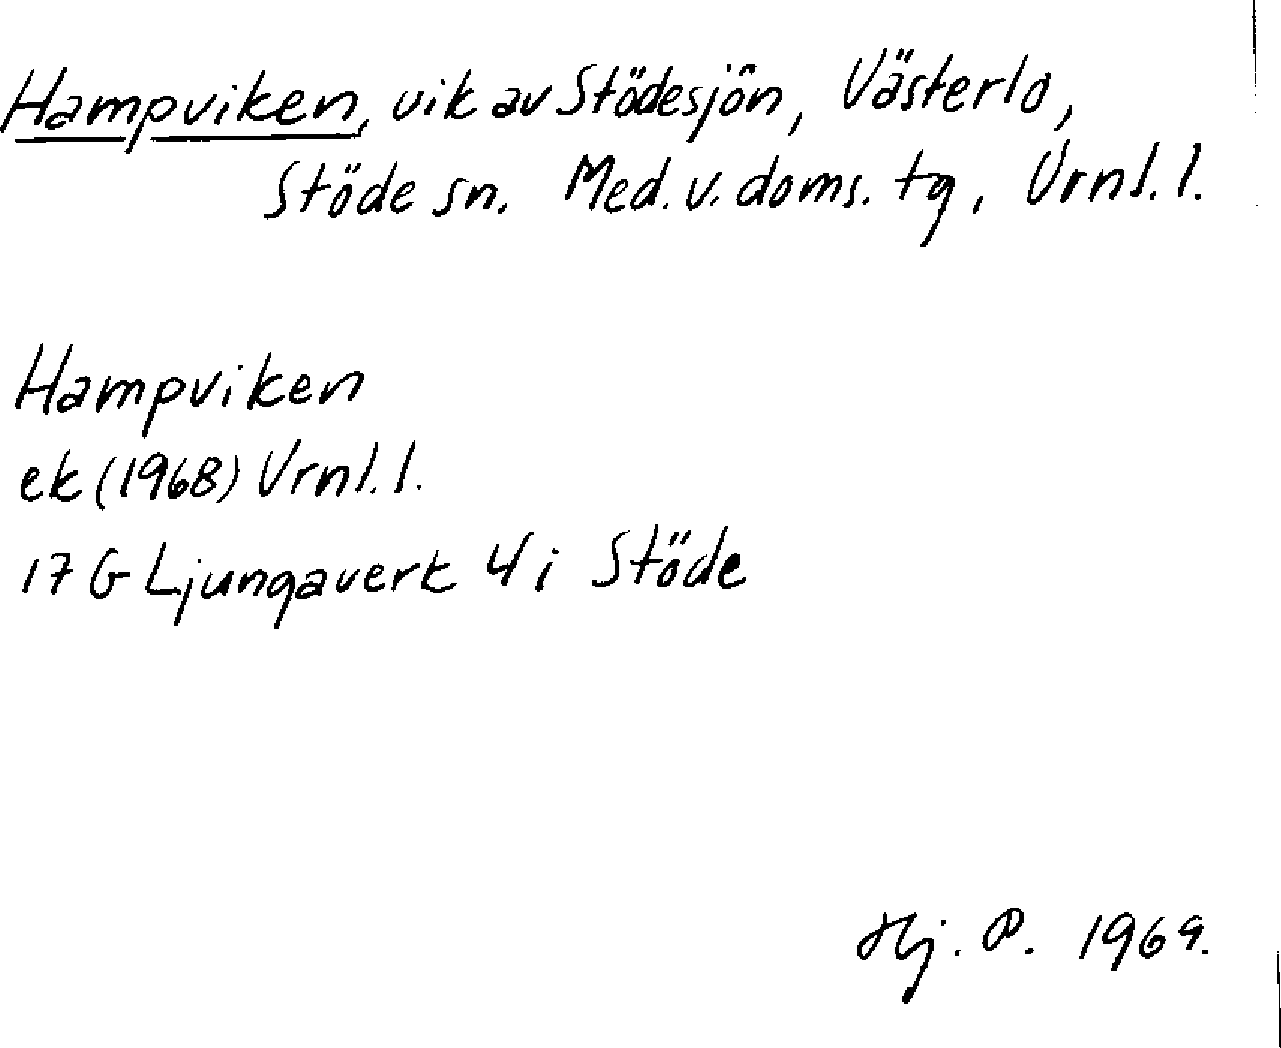 Hampviken, vik av Stödesjön, Västerlo,
Stöde sn. Med. v. doms. tg, Vrnl. l.
Hampviken
ek (1968) Vrnl. l.
17 G Ljungaverk 4 i Stöde
Hj. P. 1969.